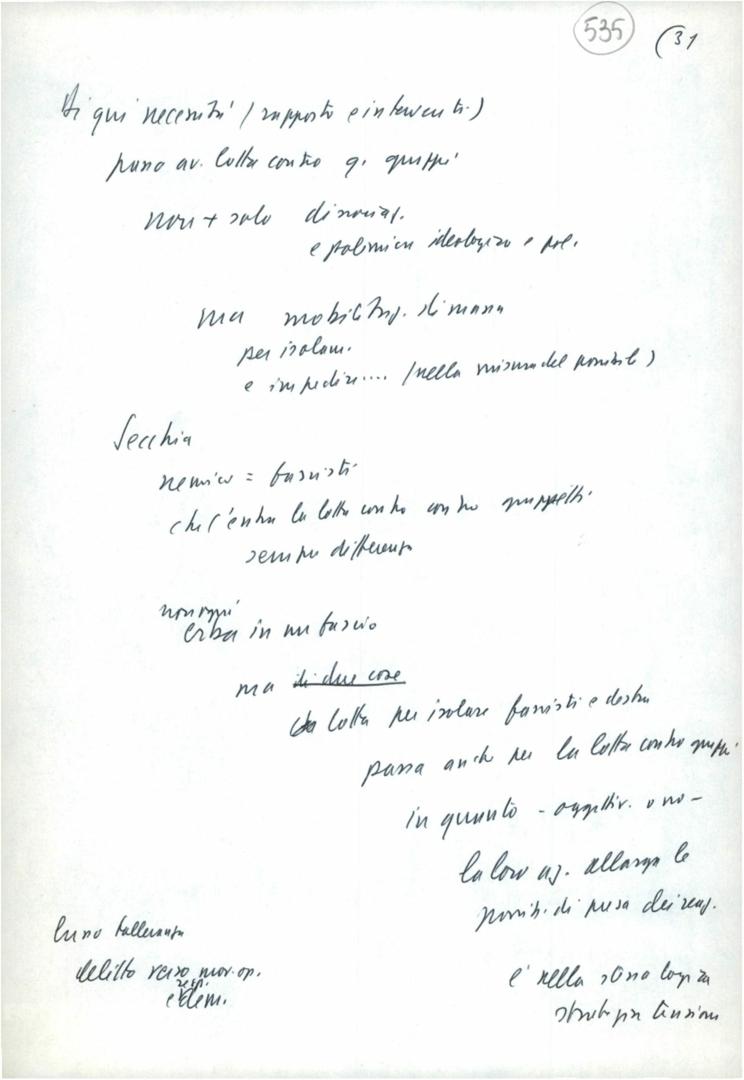 535 (31
Di qui necessità (rapporto e interventi)
passo av. lotta contro q. gruppi
non + solo dissociaz.
e polemica ideologica e pol.
ma mobilitaz. di massa
per isolam.
e impedire.... (nella misura del possibile)
Secchia
nemico = fascisti
che c'entra la lotta contro contro gruppetti
sempre differenza
non ogni
erba in un fascio
ma di due cose
la lotta per isolare fascisti e destra
passa anche per la lotta contro gruppi
in quanto - oggettiv. o no -
la loro az. allarga le
possib. di presa dei reaz.
tolleranza
delitto verso mov. op.
resp.
e dem.
è nella stessa logica
strategia tensione